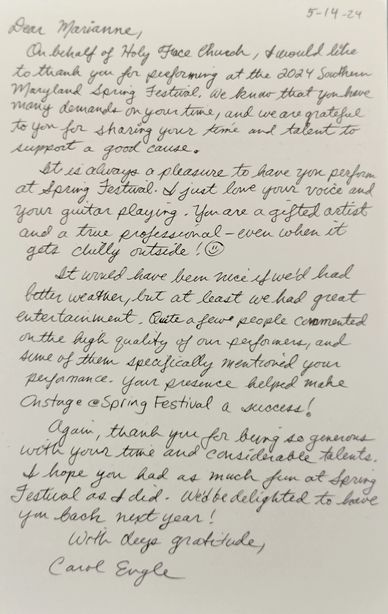 5-14-24
Dear Marianne,
On behalf of Holy Face Church, I would like
to thank you for performing at the 2024 Southern
Maryland Spring Festival. We know that you have
many demands on your time, and we are grateful
to you for sharing your time and talent to
support a good cause.
It is always a pleasure to have you perform
at Spring Festival. I just love your voice and
your guitar playing. You are a gifted artist
and a true professional - even when it
gets chilly outside! ☺
It would have been nice if we'd had
better weather, but at least we had great
entertainment. Quite a few people commented
on the high quality of our performers, and
some of them specifically mentioned your
performance. Your presence helped make
Onstage @ Spring Festival a success!
Again, thank you for being so generous
with your time and considerable talents.
I hope you had as much fun at Spring
Festival as I did. We'd be delighted to have
you back next year!
With deep gratitude,
Carol Engle